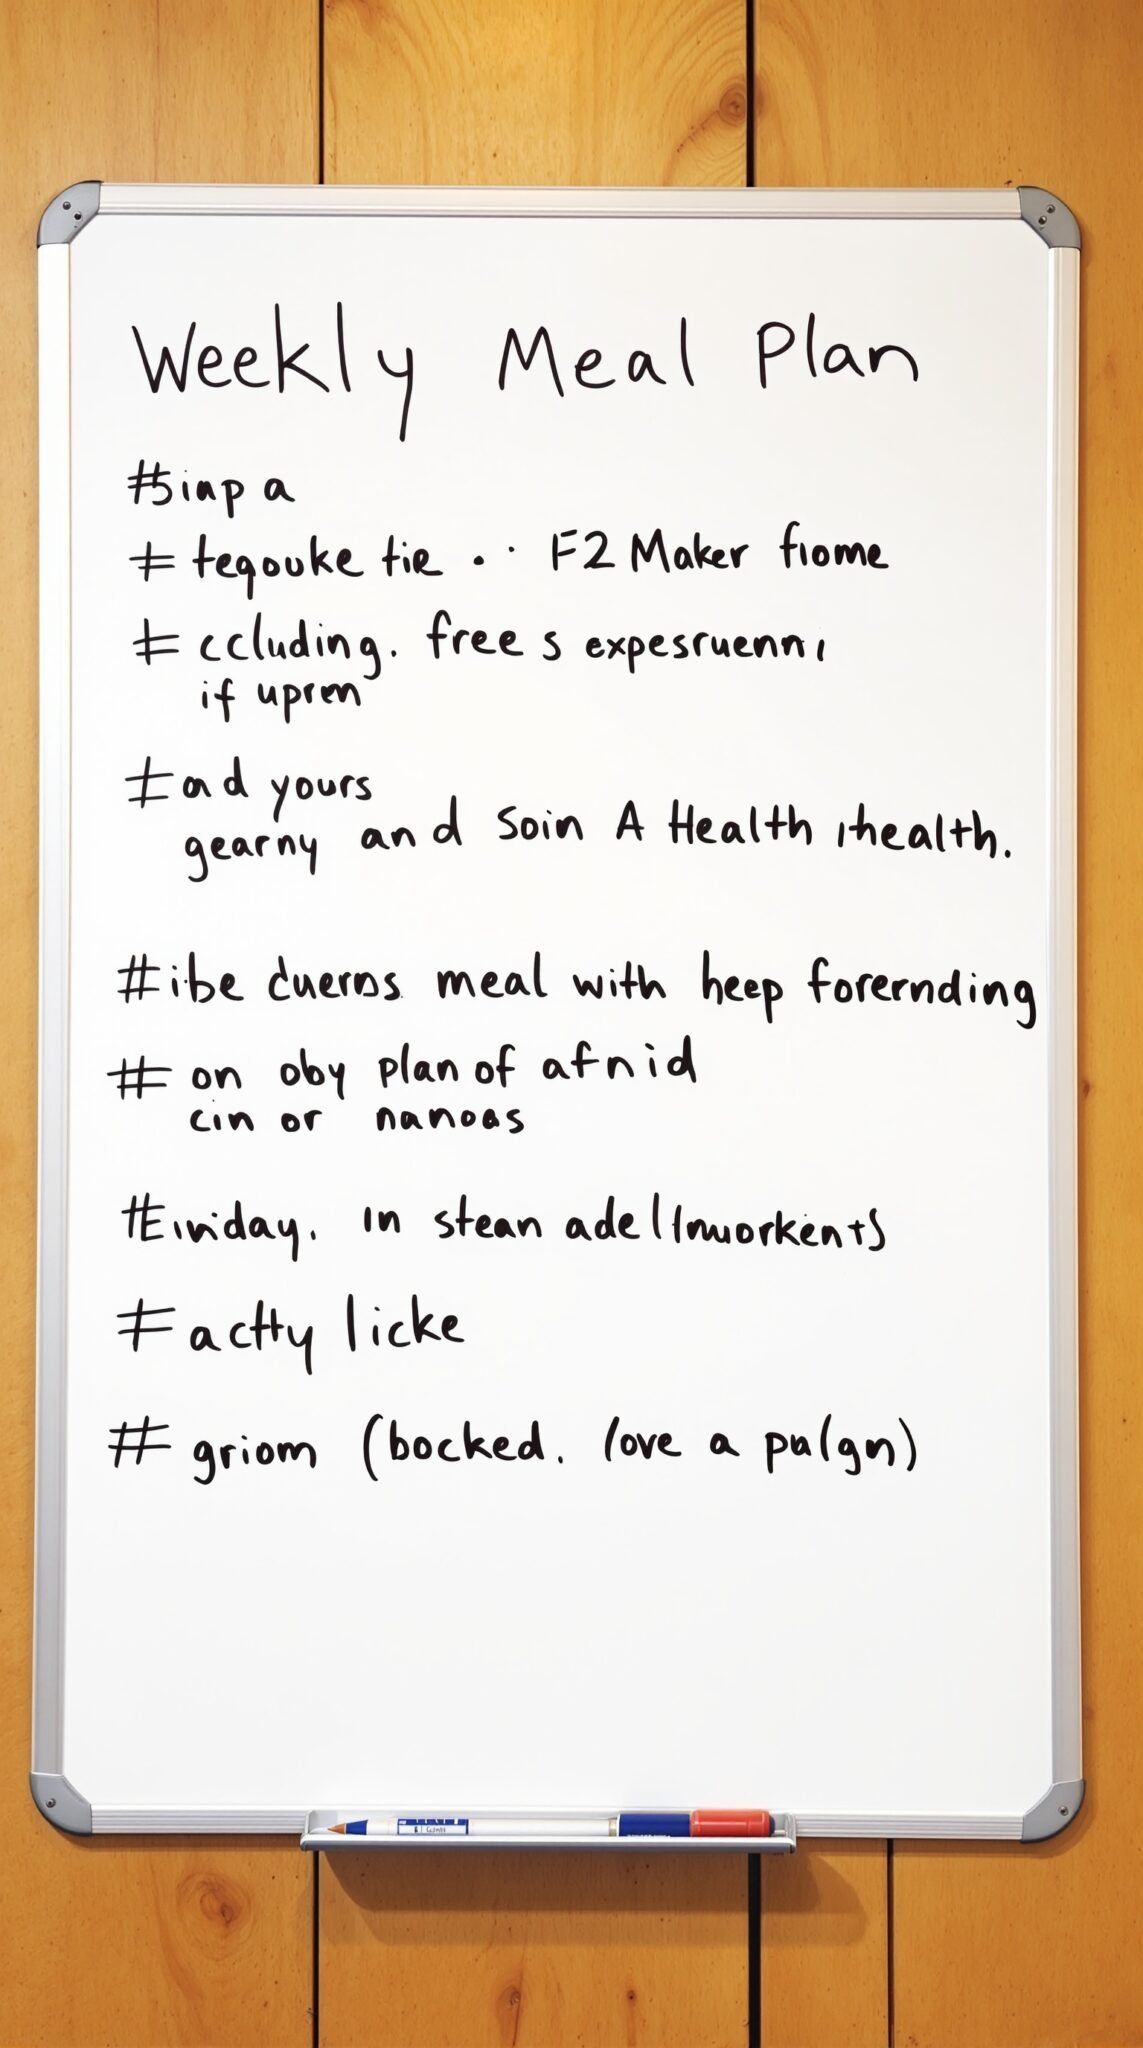 Weekly Meal Plan
#5inp a
# tegouke tie . . F2 Maker fiome
# ccluding. free s expesruenni
if upren
# ad yours
gearny and Soin A Health ihealth.
#ibe cuerns meal with heep forernding
# on oby plan of afnid
cin or nanoas
#Eividay. in stean adel
# actty licke
# griom (bocked. love a palgn)